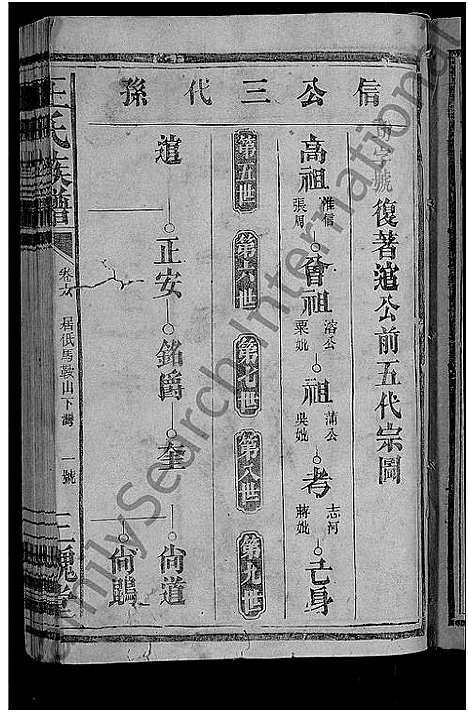 信公三代孫
復著逭公前五代宗圖
高祖 惟信 張周
曾祖 溶公 粟妣
祖 蒲公 吳妣
考 志河 蔣妣
己身
第五世 第六世 第七世 第八世 第九世
逭 正安 銘爵 奎 尙道
尙鵾
王氏族譜
居低馬鞍山下灣 一號
三槐堂
FamilySearch International